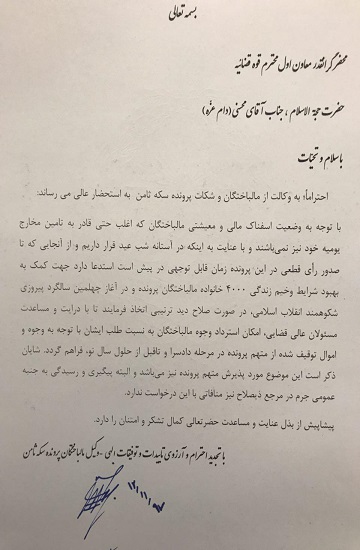 بسمه تعالی
محضر گرانقدر معاون اول محترم قوه قضائیه
حضرت حجة الاسلام ، جناب آقای محسنی (دام عزّه)
با سلام و تحیات
احتراماً؛ به وکالت از مالباختگان و شکات پرونده سکه ثامن به استحضار عالی می رساند:
با توجه به وضعیت اسفناک مالی و معیشتی مالباختگان که اغلب حتی قادر به تامین مخارج
یومیه خود نیز نمی‌باشند و با عنایت به اینکه در آستانه شب عید قرار داریم و از آنجایی که تا
صدور رأی قطعی در این پرونده زمان قابل توجهی در پیش است استدعا دارد جهت کمک به
بهبود شرایط وخیم زندگی ۴۰۰۰ خانواده مالباختگان پرونده و در آغاز چهلمین سالگرد پیروزی
شکوهمند انقلاب اسلامی، در صورت صلاح دید ترتیبی اتخاذ فرمایند تا با درایت و مساعدت
مسئولان عالی قضایی، امکان استرداد وجوه مالباختگان به نسبت طلب ایشان با توجه به وجوه و
اموال توقیف شده از متهم پرونده در مرحله دادسرا و تاقبل از حلول سال نو، فراهم گردد. شایان
ذکر است این موضوع مورد پذیرش متهم پرونده نیز می‌باشد و البته پیگیری و رسیدگی به جنبه
عمومی جرم در مرجع ذیصلاح نیز منافاتی با این درخواست ندارد.
پیشاپیش از بذل عنایت و مساعدت حضرتعالی کمال تشکر و امتنان را دارد.
با تجدید احترام و آرزوی تاییدات و توفیقات الهی - وکیل مالباختگان پرونده سکه ثامن